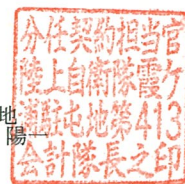 分任契約担当官
陸上自衛隊霞ケ
浦駐屯地第413
会計隊長之印
地
陽一